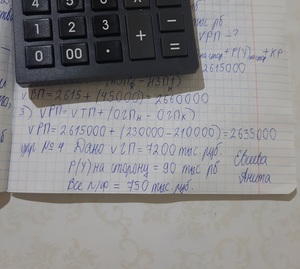 4 5 6
1 2 3 +
0 00 . =
тыс рб
VРП - ?
+ Р(У)на стор + КР
2615000
VВП = 2615 + (45000) = 2660000
3) VРП = VТП + (ОГПн - ОГПк)
VРП = 2615000 + (230000 - 210000) = 2635000
упр № 4 Дано VГП = 7200 тыс. руб.
Р(У) на сторону = 90 тыс рб
Все п/ф = 750 тыс. руб.
Анита